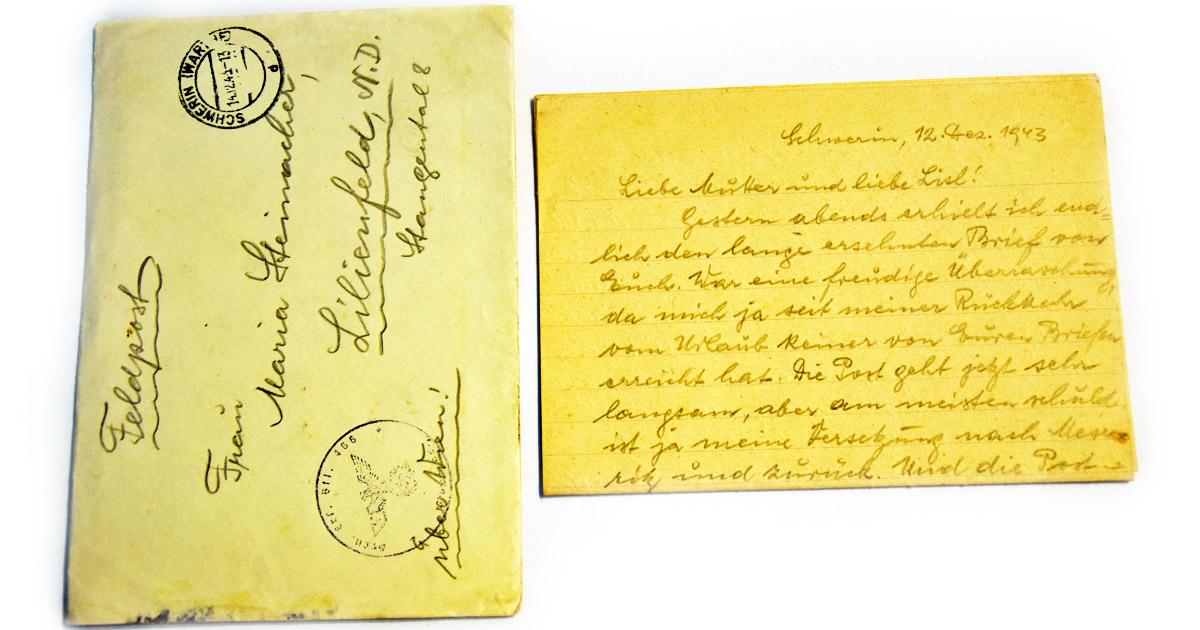 Feldpost
SCHWERIN (WAR
Frau
Maria Steinacher,
Lilienfeld, N.D.
Stangental 8
über Wien!
Schwerin, 12. Dez. 1943
Liebe Mutter und liebe Lisl!
Gestern abends erhielt ich end=
lich den lange ersehnten Brief von
Euch. War eine freudige Überraschung,
da mich ja seit meiner Rückkehr
vom Urlaub keiner von Euren Briefen
erreicht hat. Die Post geht jetzt sehr
langsam, aber am meisten schuld
ist ja meine Versetzung nach Mese-
ritz und zurück. Und die Post-